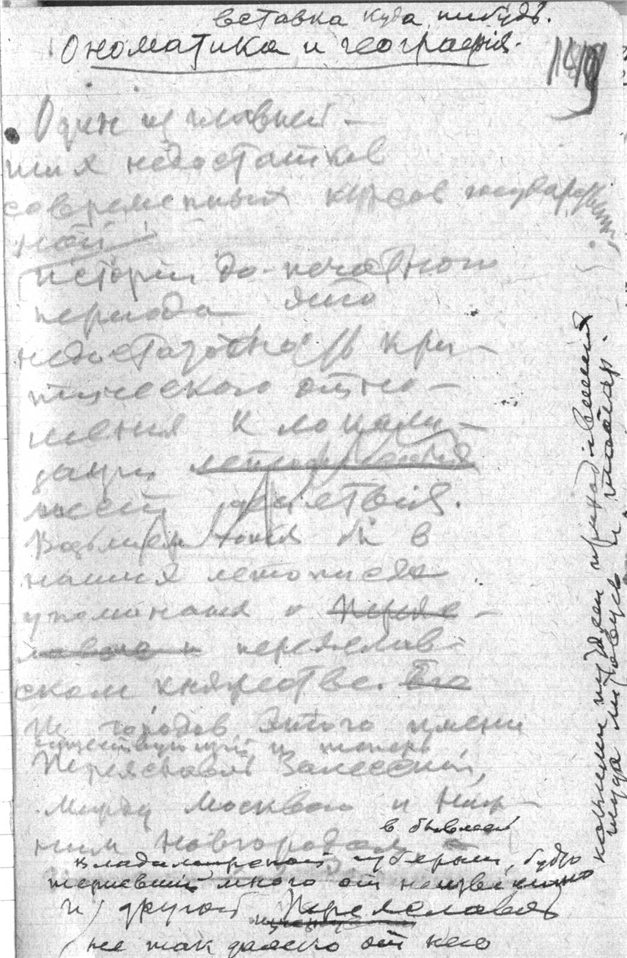 вставка куда нибудь.
Ономатика и географія.
149
Один из главней-
ших недостатков
современных курсов
ной
истории до-печатного
периода это
недостаточность кри-
тического отно-
шения к локали-
зации
мест действія.
Возьмем хотя бы в
наших летописях
упоминания о Перея-
славле и переяслав-
ском княжестве. Его
Из городов этого имени
существующий и теперь
Переяславль Залесский,
между Москвою и Ниж-
ним Новгородом
в бывшей
Владимирской губернии, будто
терпевший много от
и другой Переяславль
не так далеко от него
какими путями приходившия
туда литовцы и татар.